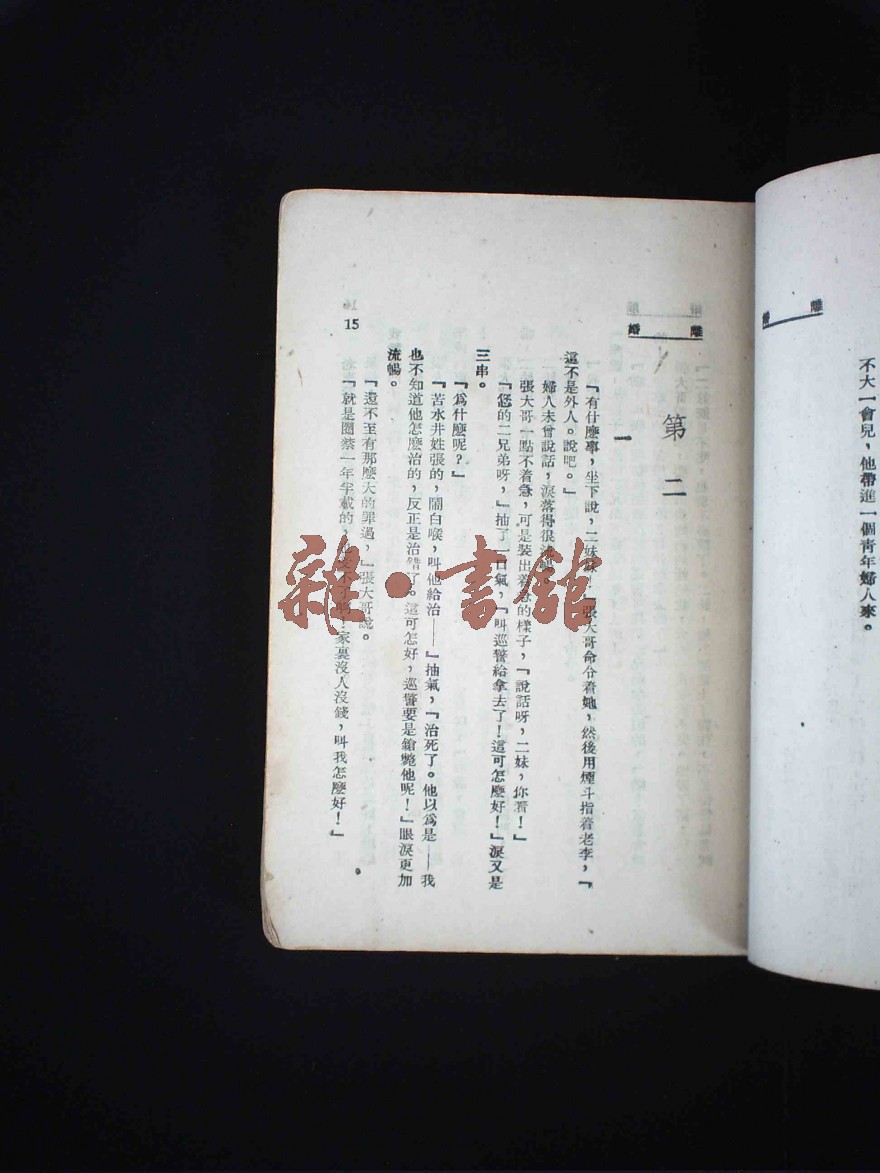 不大一會兒，他帶進一個靑年婦人來。
離婚
第二
一
『有什麽事，坐下說，二妹妹！』張大哥命令着她，然後用煙斗指着老李，『
這不是外人。說吧。』
婦人未曾說話，淚落得很流暢。
張大哥一點不着急，可是裝出着急的樣子，『說話呀，二妹，你看！』
『您的二兄弟呀，』抽了一口氣，『叫巡警給拿去了！這可怎麽好！』淚又是
三串。
『爲什麽呢？』
『苦水井姓張的，鬧白喉，叫他給治——』抽氣，『治死了。他以爲是——我
也不知道他怎麽治的，反正是治錯了。這可怎好，巡警要是鎗斃他呢！』眼淚更加
流暢。
『還不至有那麽大的罪過，』張大哥說。
『就是圈禁一年半載的，也受不了啊！家裏沒人沒錢，叫我怎麽好！』
15
雜·書館